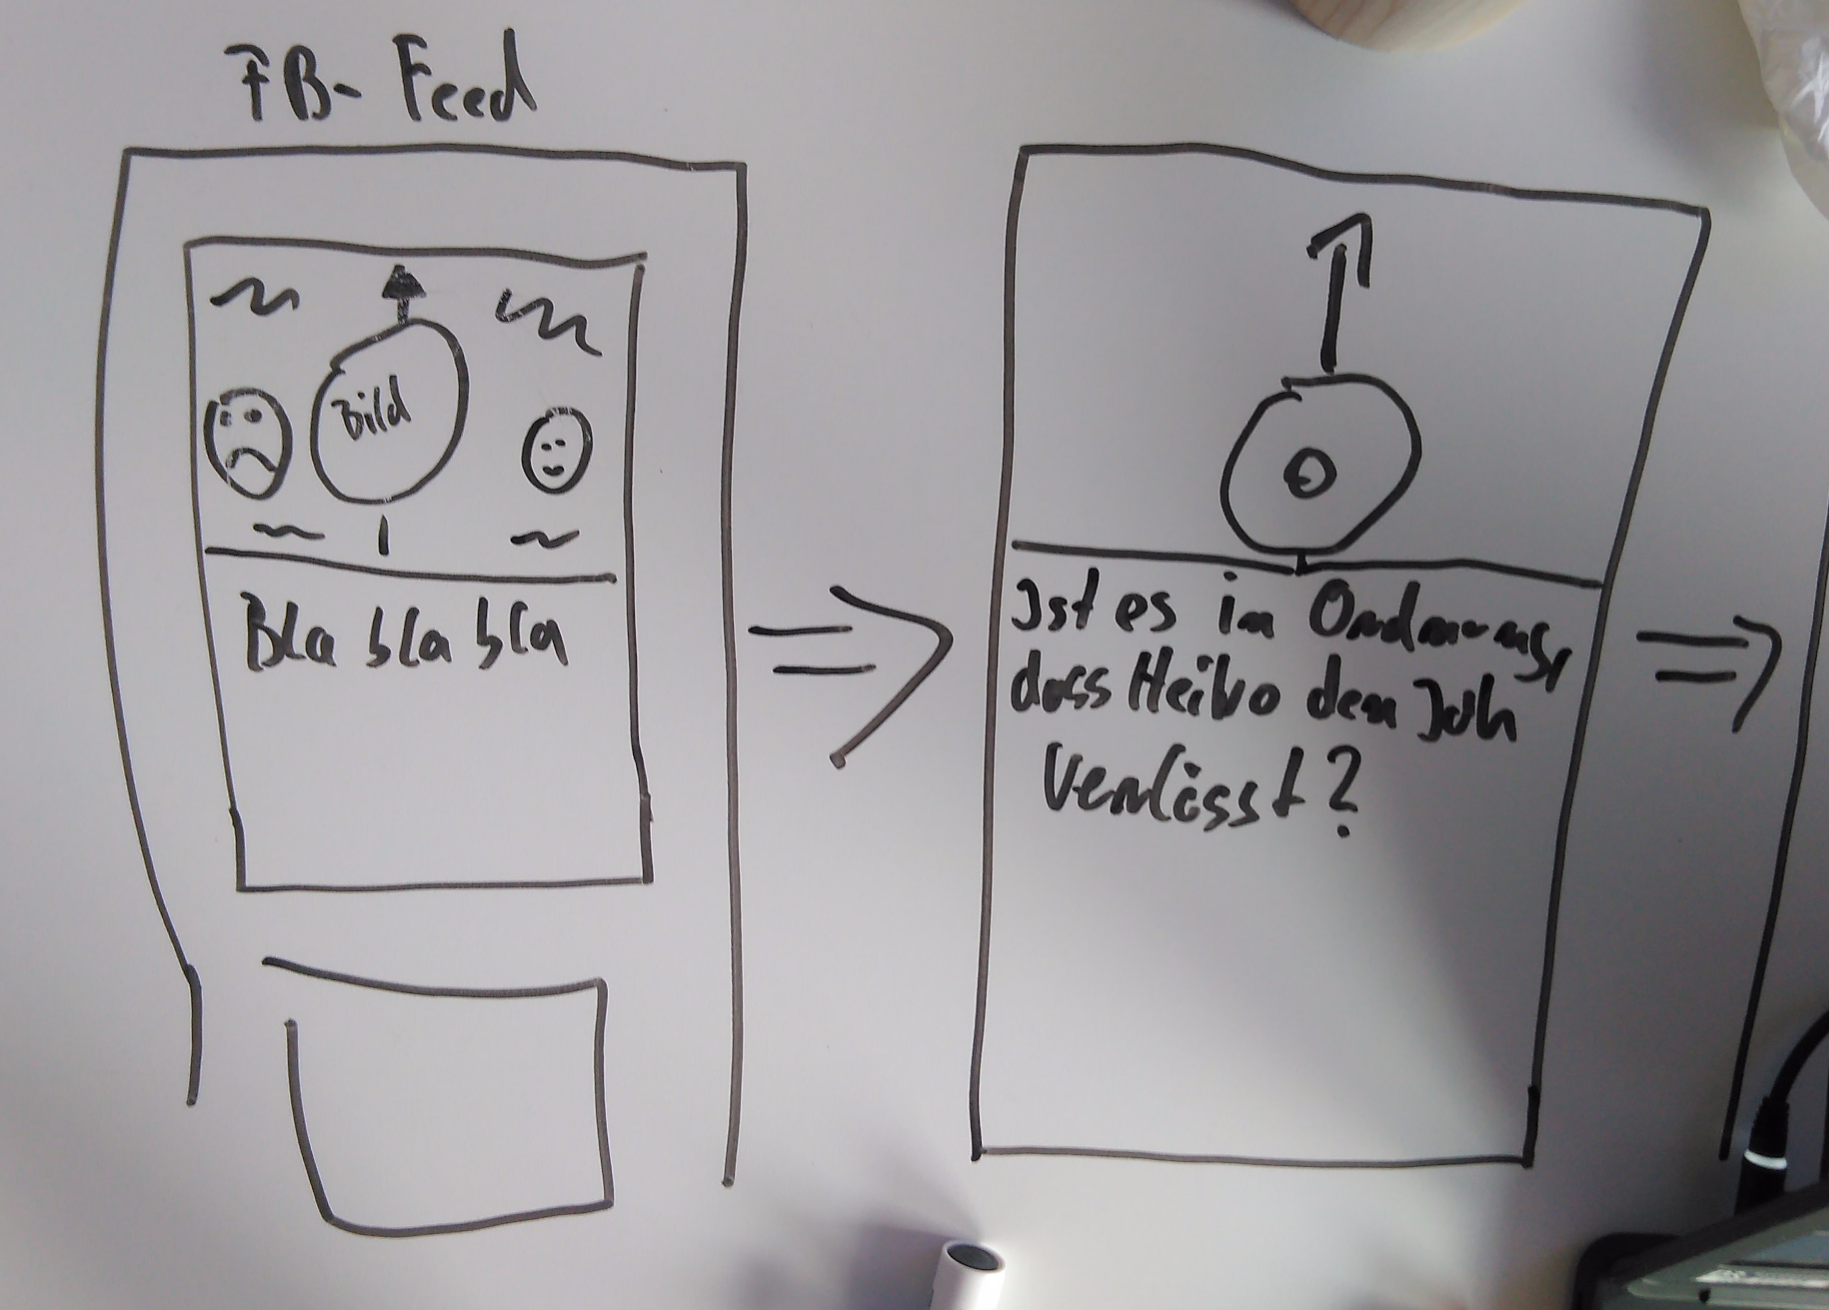 FB- Feed
Bild
Bla bla bla
Ist es in Ordnung,
dass Heiko den Job
verlässt?